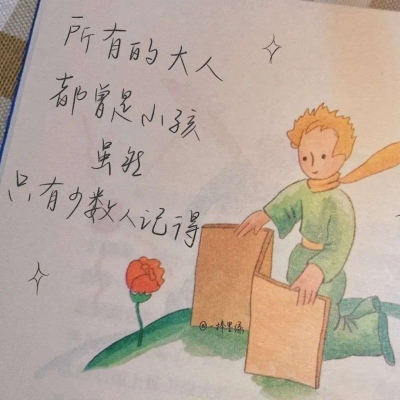 所有的大人
都曾是小孩
虽然
只有少数人记得